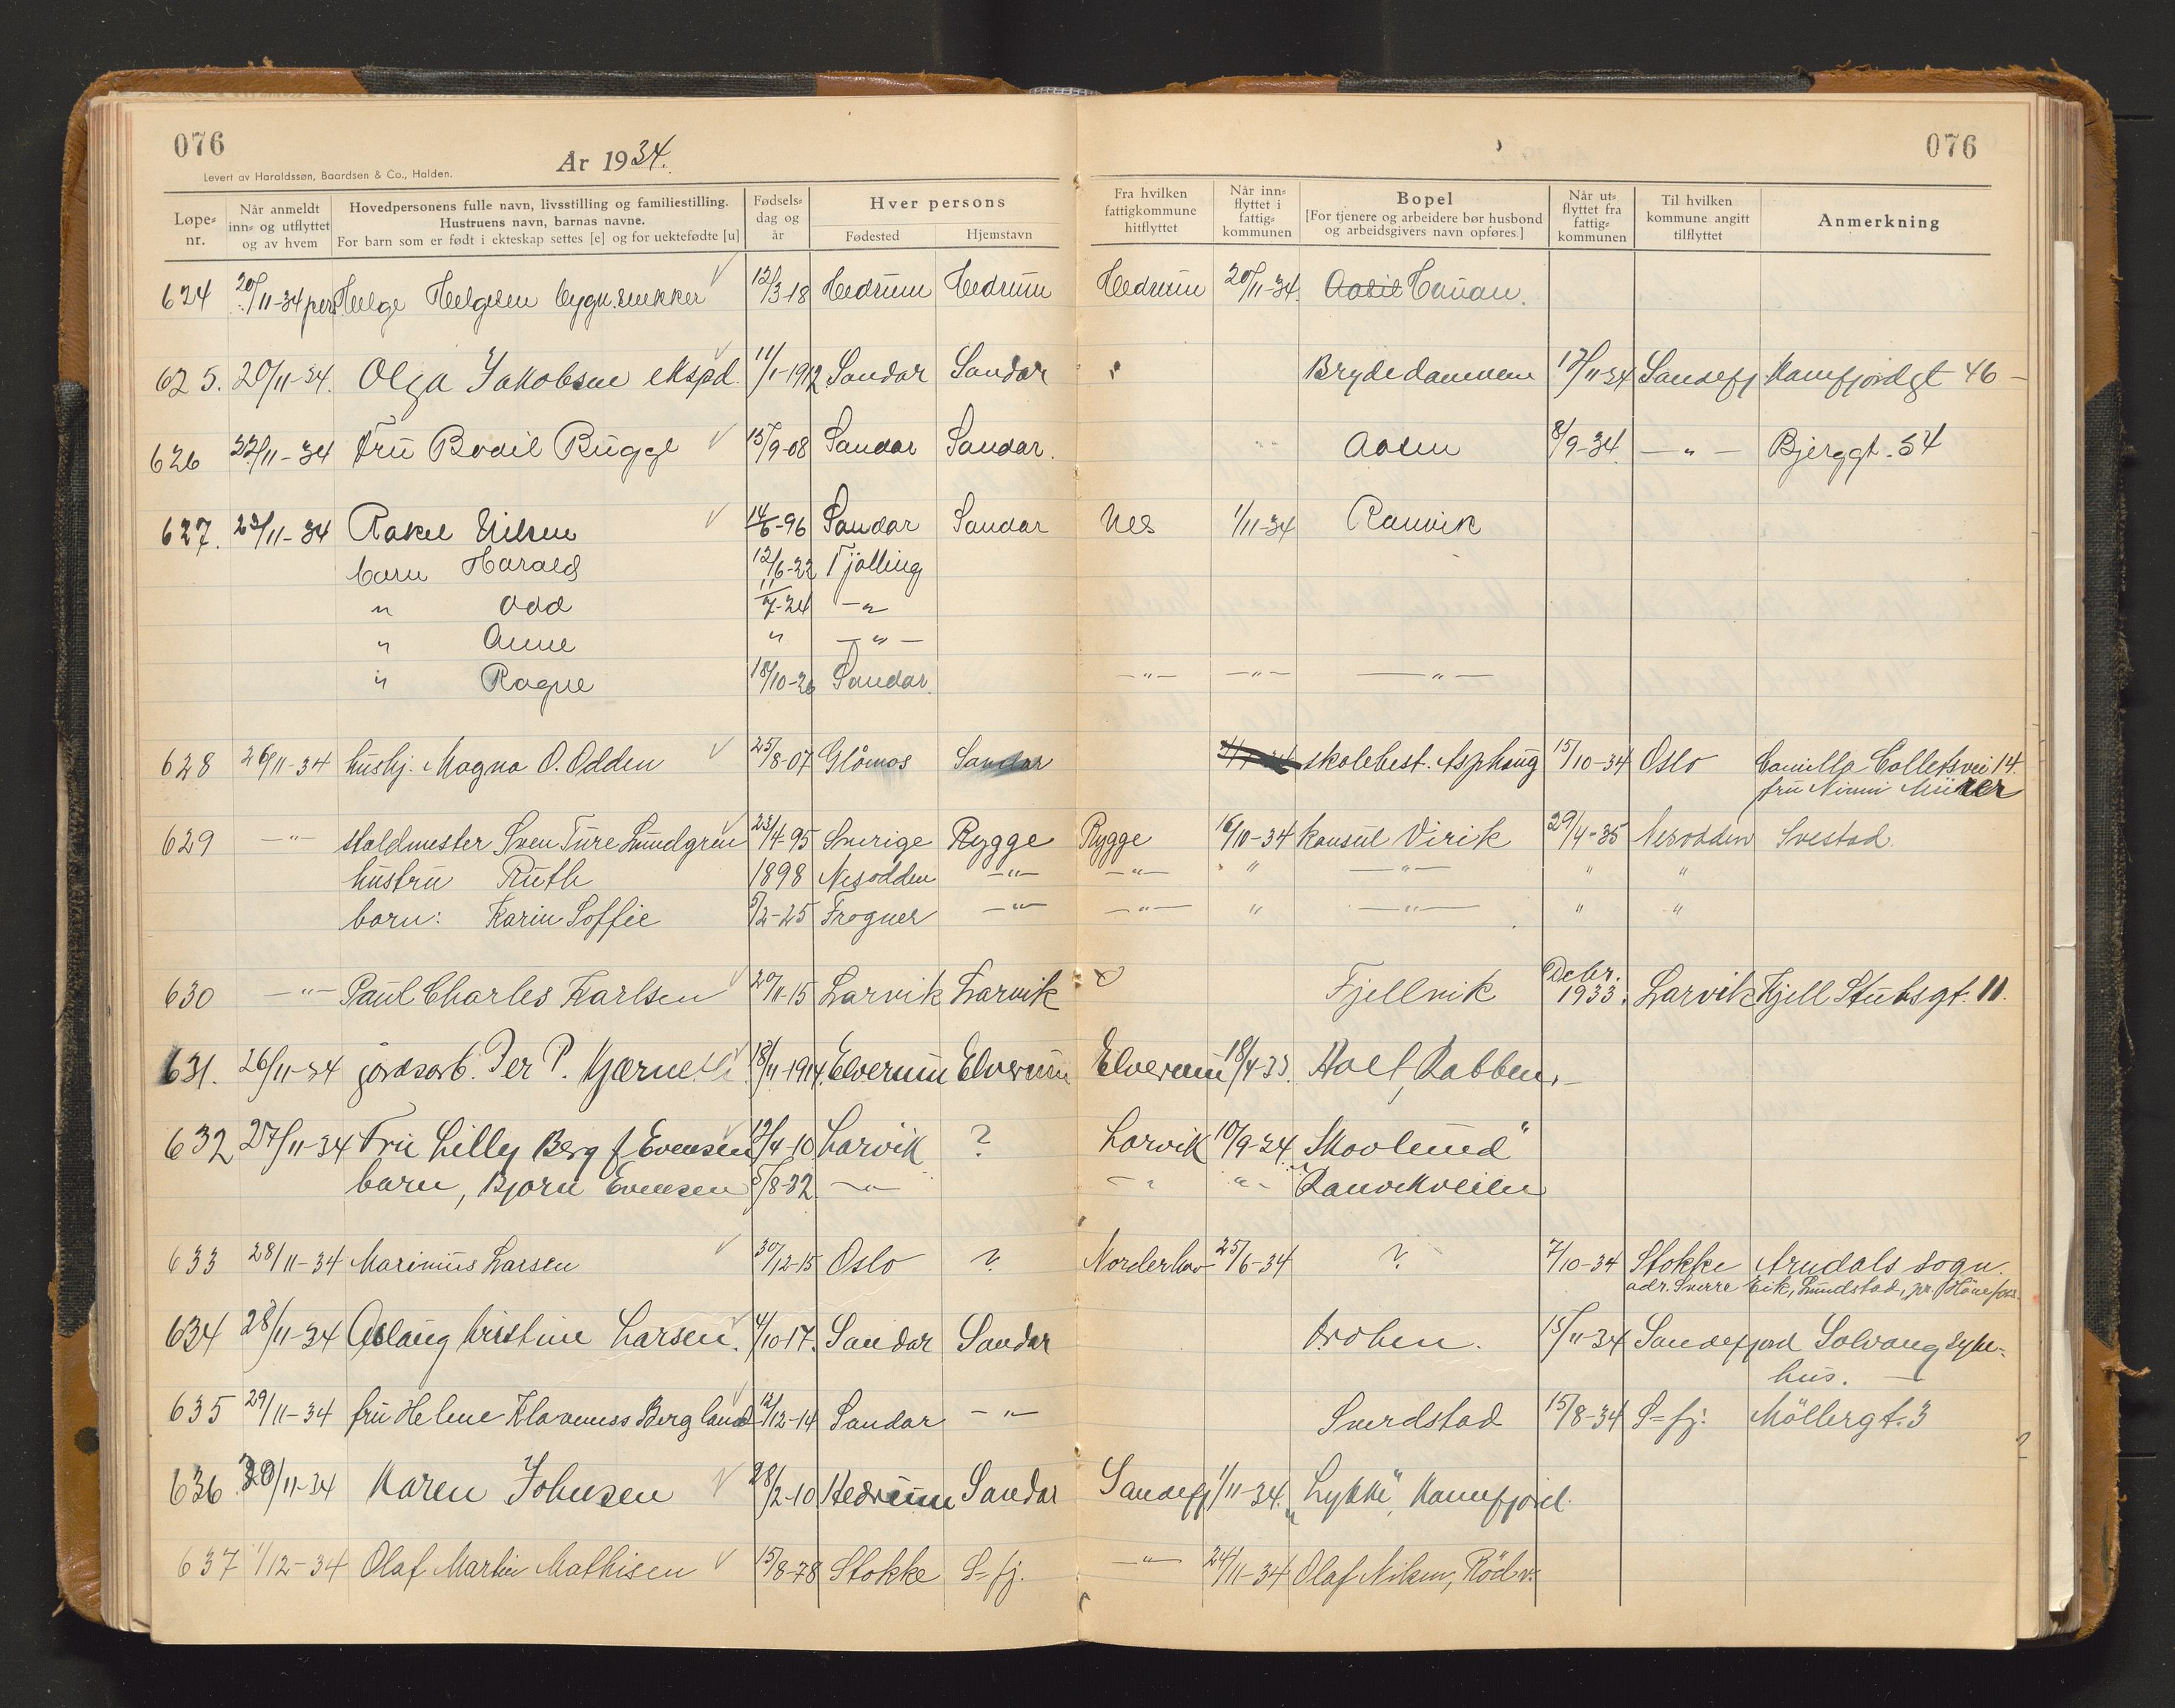 076
År 1934.
076
Levert av Haraldssøn, Baardsen & Co., Halden.
Løpe-nr. Når anmeldt inn- og utflyttet og av hvem Hovedpersonens fulle navn, livsstilling og familiestilling. Hustruens navn, barnas navne. For barn som er født i ekteskap settes [e] og for uektefødte [u] Fødsels-dag og år Hver persons Fødested Hjemstavn Fra hvilken fattigkommune hitflyttet Når inn-flyttet i fattig-kommunen Bopel [For tjenere og arbeidere bør husbond og arbeidsgivers navn opføres.] Når ut-flyttet fra fattig-kommunen Til hvilken kommune angitt tilflyttet Anmerkning
624 20/11-34 pers Helge Helgesen bygn.snekker 12/3-18 Hedrum Hedrum Hedrum 20/11-34. Hauan.
625. 20/11-34. Olga Jakobsen eksped. 11/1-1912 Sandar Sandar Brydedammen 17/11-34 Sandefj Kamfjordgt 46 -
626 22/11-34 Fru Bodil Bugge 15/9-08 Sandar Sandar. Aasen 8/9-34 — " — Bjerggt. 54
627. 23/11-34 Rakel Nilsen 14/6-96 Sandar Sandar Nes 1/11-34 Ranvik
barn Harald 12/6-22 Tjølling
" Odd 11/7-24 - "
" Anne " — " —
" Ragne 18/10-26 Sandar. — " — — " — — " —
628 26/11-34 hushj. Magna O. Odden 25/8-07 Glåmos Sandar skolebest. Asphaug 15/10-34 Oslo Camilla Colletsvei 14.
fru Nimi
629 — " — staldmester Sven Ture Lundgren 23/4-95 Sverige Rygge Rygge 16/10-34 konsul Virik 29/4-35 Nesodden Svestad.
hustru Ruth 1898 Nesodden — " — — " — " — " — " "
barn: Karin Soffie 5/2-25 Frogner — " — — " — " — " — " "
630 — " — Paul Charles Karlsen 20/11-15 Larvik Larvik Fjellvik Debr. 1933. Larvik Kjell Stubsgt. 11.
631. 26/11-34 jordarb. Per P. 18/11-1914. Elverum Elverum Elverum 18/4-33. Holt, Rabben. —
632 27/11-34 Fru Lilly Berg f Evensen 12/4-10 Larvik ? Larvik 10/9-34 "Skovlund"
barn, Bjørn Evensen 5/8-32 — " — " — " - Ranvikveien
633 28/11-34 Marinius Larsen 30/12-15 Oslo ? Norderhov 25/6-34 ? 7/10-34 Stokke Arndals sogn.
adr. Sverre Eik, Lundstad, pr. Hønefoss.
634 28/11-34 Aslaug Kristine Larsen. 4/10-17. Sandar Sandar 15/11-34 Sandefjord Solvang syke-
hus. —
635 29/11-34 fru Helene Klaveness Bergland 12/12-14 Sandar — " — Sverdstad 15/8-34 S=fj. Møllergt. 3
636 30/11-34 Karen Johnsen 28/2-10 Hedrum Sandar Sandefj 1/11-34. "Lykke", Kamfjord.
637 1/12-34 Olaf Martin Mathisen 15/8-78 Stokke S=fj. — " — 24/11-34 Olaf Nilsen, Rødv.